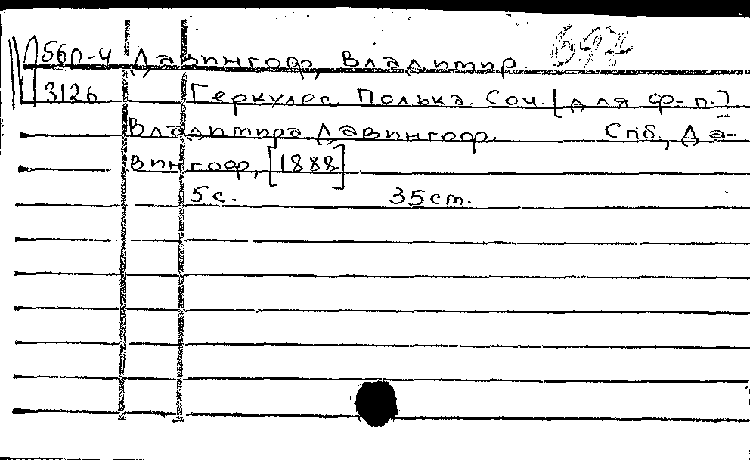 П56п-4 Давингоф, Владимир 697
3126 Геркулес Полька. Соч. [для ф-п.]
Владимира Давингоф. Спб., Да-
вингоф, [1888]
5 с. 35 ст.